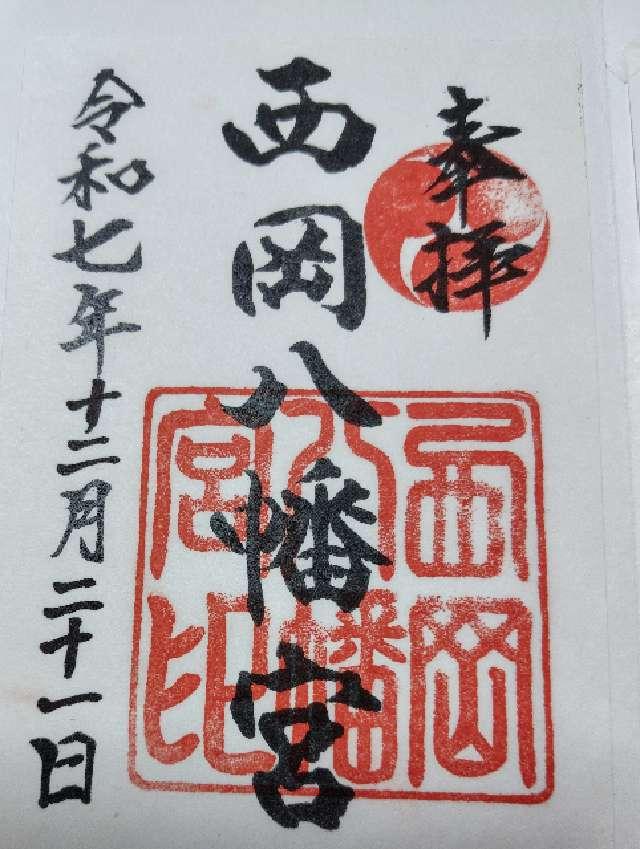 奉拝
西岡八幡宮
令和七年十二月二十一日
西岡
八幡
宮印